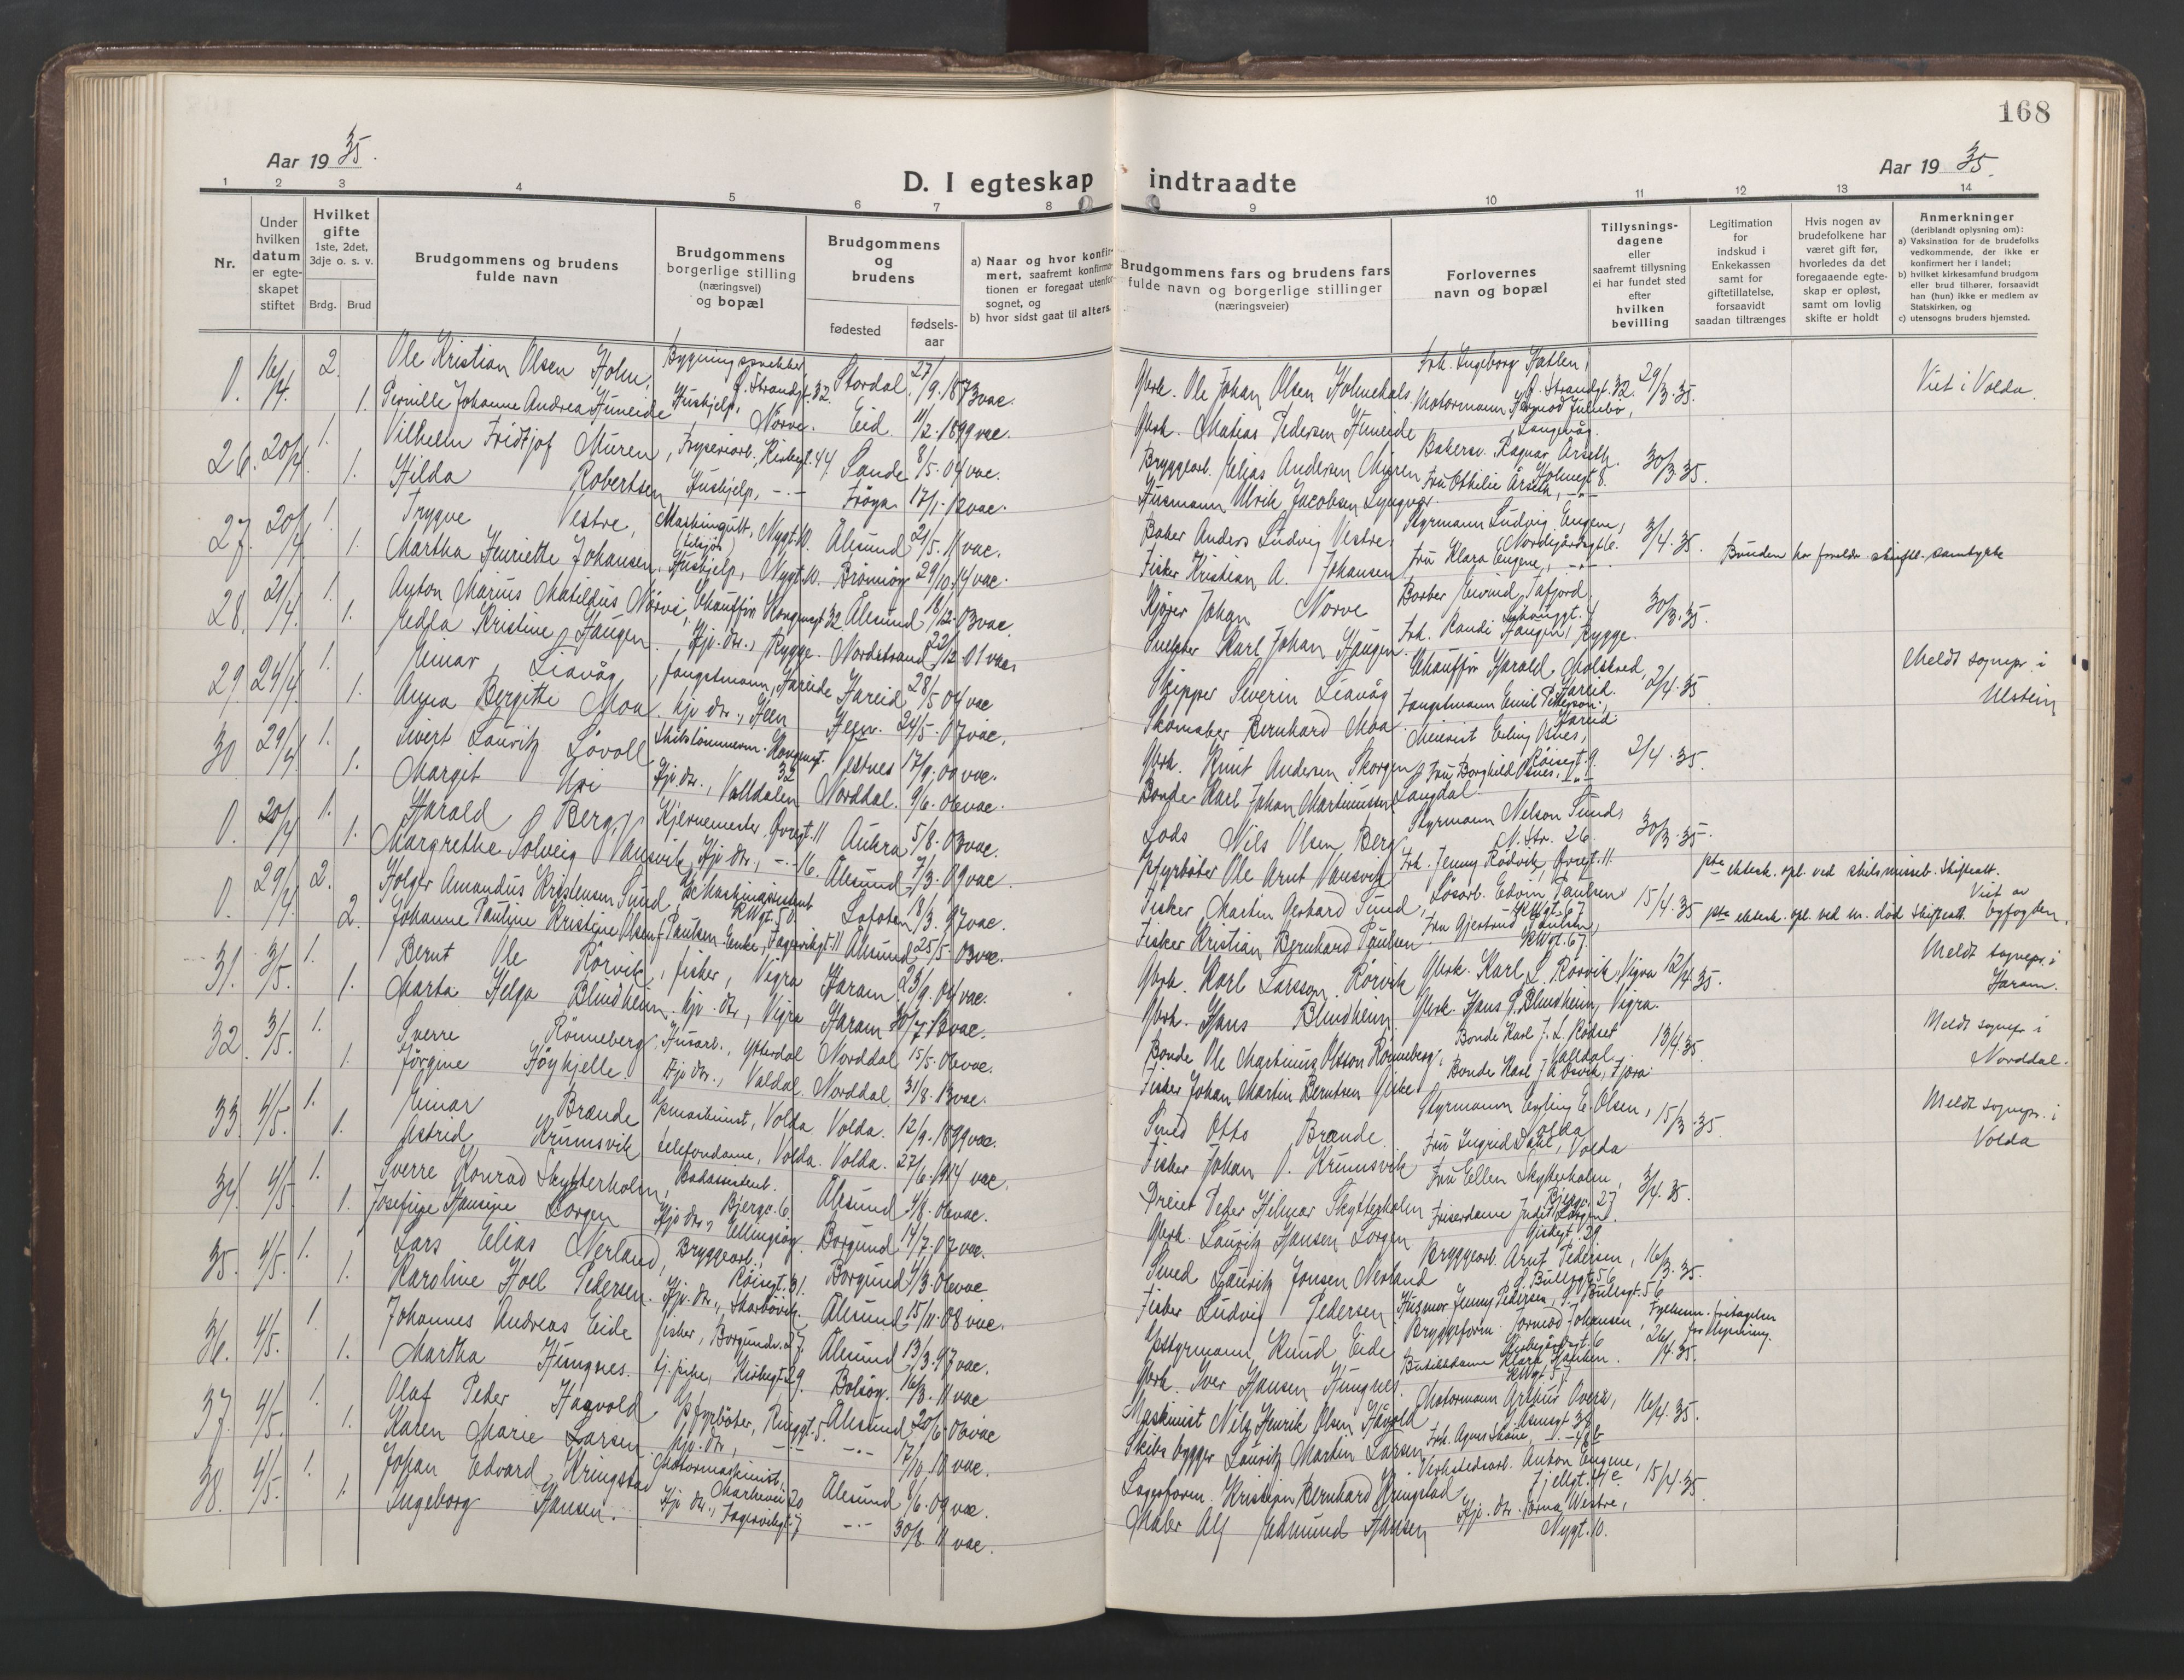 168
Aar 1935.
Aar 1935.
D. I egteskap indtraadte
1 2 3 4 5 6 7 8 9 10 11 12 13 14
Nr.
Under hvilken datum er egteskapet stiftet
Hvilket gifte
1ste, 2det, 3dje o. s. v.
Brdg. Brud
Brudgommens og brudens fulde navn
Brudgommens borgerlige stilling (næringsvei) og bopæl
Brudgommens og brudens
fødested
fødselsaar
a) Naar og hvor konfirmert, saafremt konfirmationen er foregaat utenfor sognet, og
b) hvor sidst gaat til alters.
Brudgommens fars og brudens fars fulde navn og borgerlige stillinger (næringsveier)
Forlovernes navn og bopæl
Tillysningsdagene eller saafremt tillysning ei har fundet sted efter hvilken bevilling
Legitimation for indskud i Enkekassen samt for giftetillatelse, forsaavidt saadan tiltrænges
Hvis nogen av brudefolkene har været gift før, hvorledes da det foregaaende egteskap er opløst, samt om lovlig skifte er holdt
Anmerkninger (deriblandt oplysning om):
a) Vaksination for de brudefolks vedkommende, der ikke er konfirmert her i landet;
b) hvilket kirkesamfund brudgom eller brud tilhører, forsaavidt han (hun) ikke er medlem av Statskirken, og
c) utensogns bruders hjemsted.
0. 16/4. 2. Ole Kristian Olsen Holm, Bygningssnekker, Strandgt. 32. Stordal 27/9. 1873 vac. Gbrk. Ole Johan Olsen Holmedals Frk. Ingeborg Hatlen, Strandgt. 32. 29/3. 35. Viet i Volda.
1. Pernille Johanne Andrea Humeide Hushjelp, Nörve. Eid. 11/2. 1899 vac. Gbrk. Matias Pedersen Humeide Motormann Langevåg.
26. 20/4. 1. Vilhelm Fridtjof Muren, Fryseriarb., Kirkegt. 44. Sande 8/5. 04 vac. Bryggearb. Elias Andersen Muren Bakersv. Ragnar Årseth, Holmegt 8. 30/3. 35.
1. Hilda Robertsen Hushjelp, -"- Fröya 17/1. 12 vac. Husmann Ulrik Jacobsen Lyngvær Fru Othilie Årseth, -"-
27. 20/4 1. Trygve Vestre, Maskingutt, Nygt. 10. Ålesund 21/5. 11 vac. Baker Anders Ludvig Vestre. Styrmann Ludvig Eugene, 3/4. 35. Bruden har foreldr. skriftl. samtykke
1. Martha Henriette Johansen, Hushjelp, Nygt. 10. Brönnöy 29/10. 14 vac. Fisker Kristian A. Johansen Fru Klara Eugene, -"-
28. 21/4. 1. Anton Marius Matildus Nörve, Chaufför Kongensgt 32 Ålesund 18/12. 03 vac. Kjörer Johan Nörve Barber Eivind Tafjord, 30/3. 35.
1. Edda Kristine Haugen Hjv. dtr., Rygge. Nordstrand 22/12. 01 vac. Snekker Karl Johan Haugen Frk. Randi Haugen, Rygge.
29. 24/4. 1. Einar Liavåg, fangstmann, Hareide Hareid 28/5 04 vac Skipper Severin Liavåg Chaufför Harald Molstred, Hareid. 2/4. 35 Meldt sognepr. i Ulstein
1. Anna Bergitte Moa. hjv. dtr., Hareid 24/5. 07 vac. Skomaker Bernhard Moa Fangstmann Emil Pettersen, Hareid
30 29/4. 1. Sivert Lauritz Lövoll Skibstömmerm. Kongensgt. 32 Vestnes 17/9. 09 vac. Gbrk. Knut Andersen Skorgen Meierist Erling Osnes, Röisegt. 9. 2/4. 35.
1. Margit Uri Hjv. dtr., Valldalen Norddal. 9/6. 06 vac. Bonde Karl Johan Martinussen Langdal Fru Borghild Osnes, -"-
0. 20/4 1. Harald Berg, Hjernemester, Övregt. 11 Aukra 5/8. 03 vac. Lods Nils Olsen Berg Styrmann Nelson Sund, N. Str. 26. 30/3. 35.
1. Margrethe Solveig Vansvik, Hjv. dtr., -"- 16. Ålesund 7/3. 09 vac. Gfyrböter Ole Arnt Vansvik Frk. Jenny Rödvik, Övregt. 11.
0. 29/4. 2. Holger Amandus Kristensen Sund, Maskinassistent K Wgt. 50. Lofoten 18/3. 97 vac. Fisker Martin Gerhard Sund, Lösarb. Edvin Paulsen K Wgt. 67 15/4. 35 1ste ektesk. opl. ved skilsmisseb. Skiftatt. Viet av byfogden.
2. Johanne Pauline Kristine Olsen f. Paulsen Enke, Fagervikgt. 11 Ålesund 25/5 03 vac. Fisker Kristian Bernhard Paulsen. Fru Gjertrud Paulsen, K Wgt. 67. 1ste ektesk. opl. ved m. död Skiftatt.
31. 3/5. 1. Bernt Ole Rörvik, fisker, Vigra Haram 23/9 04 vac. Gbrk. Karl Larsson Rörvik Gbrk. Karl L. Rörvik, Vigra 12/4 35. Meldt sognepr. i Haram.
1. Marta Helga Blindheim. hjv. dtr., Vigra Haram 30/7. 12 vac. Gbrk. Hans Blindheim Gbrk. Hans P. Blindheim, Vigra.
32. 3/5. 1. Sverre Rönneberg. Husarb., Ytterdal Norddal 15/5. 06 vac. Bonde Ole Martinus Olsson Rönneberg. Bonde Karl J. L. Rödset Valldal 13/4. 35. Meldt sognepr. i Norddal.
1. Jörgine Höghjelle. Hjv dtr., Valdal. Norddal. 31/8. 13 vac. Fisker Johan Martin Berntsen Giske Bonde Karl J. A. Osvik, Fjöra.
33. 4/5. 1. Einar Brænde maskinist, Volda Volda. 12/9. 1899 vac. Smed Otto Brænde Styrmann Erling E. Olsen, Volda 15/3. 35. Meldt sognepr. i Volda
1. Astrid Krumsvik telefondame, Volda. Volda. 27/6. 1914 vac. Fisker Johan O. Krumsvik Fru Ingrid Dahl, Volda
34. 4/5. 1. Sverre Konrad Skytterholm, Badassistent. Bjergv. 6. Ålesund 4/8. 06 vac. Dreier Peter Hilmar Skytterholm Fru Ellen Skytterholm, Bjergv. 27 3/4. 35.
1. Josefine Hansine Lorgen Hjv dtr., Ellingsöy. Borgund 14/7. 07 vac. Gbrk. Lauritz Hansen Lorgen Friserdame Judit Lorgen. Giskegt. 29.
35. 4/5. 1. Lars Elias Nerland, Bryggearb., Röisegt. 31. Borgund 4/3. 06 vac Smed Lauritz Jonsen Nerland Bryggearb. Arnt Pedersen, Bullsgt 56 16/3. 35.
1. Karoline Hoel Pedersen. Hjv. dtr., Skarbövik. Ålesund 15/11. 08 vac. Fisker Ludvig Pedersen Husmor Jenny Pedersen, Bullsgt. 56
36. 4/5. 1. Johannes Andreas Eide fisker, Borgundv. 27. Ålesund 13/3. 97 vac. Styrmann Knud Eide Bryggeform. Tormod Johansen, Kirkegårdsgt. 6 Fylkesm. fritagelse for lysning. 26/4. 35.
1. Martha Hungnes. tj. pike, Kirkegt. 29. Bolsöy. 16/3. 11 vac Gbrk. Iver Hansen Hungnes. Butikkdame Klara Hansen. K Wgt. 57.
37. 4/5. 1. Olaf Peter Hagvold fyrböter, Ringgt. 5. Ålesund 20/6. 06 vac Maskinist Nils Henrik Olsen Hågvold Motormann Arthur Överå, 16/4. 35.
1. Karen Marie Larsen hjv. dtr., -"- -"- 17/10. 10 vac. Skibsbygger Lauritz Martin Larsen Frk. Agnes Skåne, -"- 48 b
38. 4/5. 1. Johan Edvard Kringstad Motormaskinist, Markevei 20 Ålesund 8/6. 09 vac. Lagerform. Kristian Bernhard Kringstad Verkstedsarb. Anton Eugene, Fjellgt. 4 c 15/4. 35.
1. Ingeborg Hansen. Hjv dtr., Fagervikgt. 7 -"- 30/8. 11 vac. Maler Alf Edmund Hansen Hjv. dtr. Borna Westre, Nygt. 10.